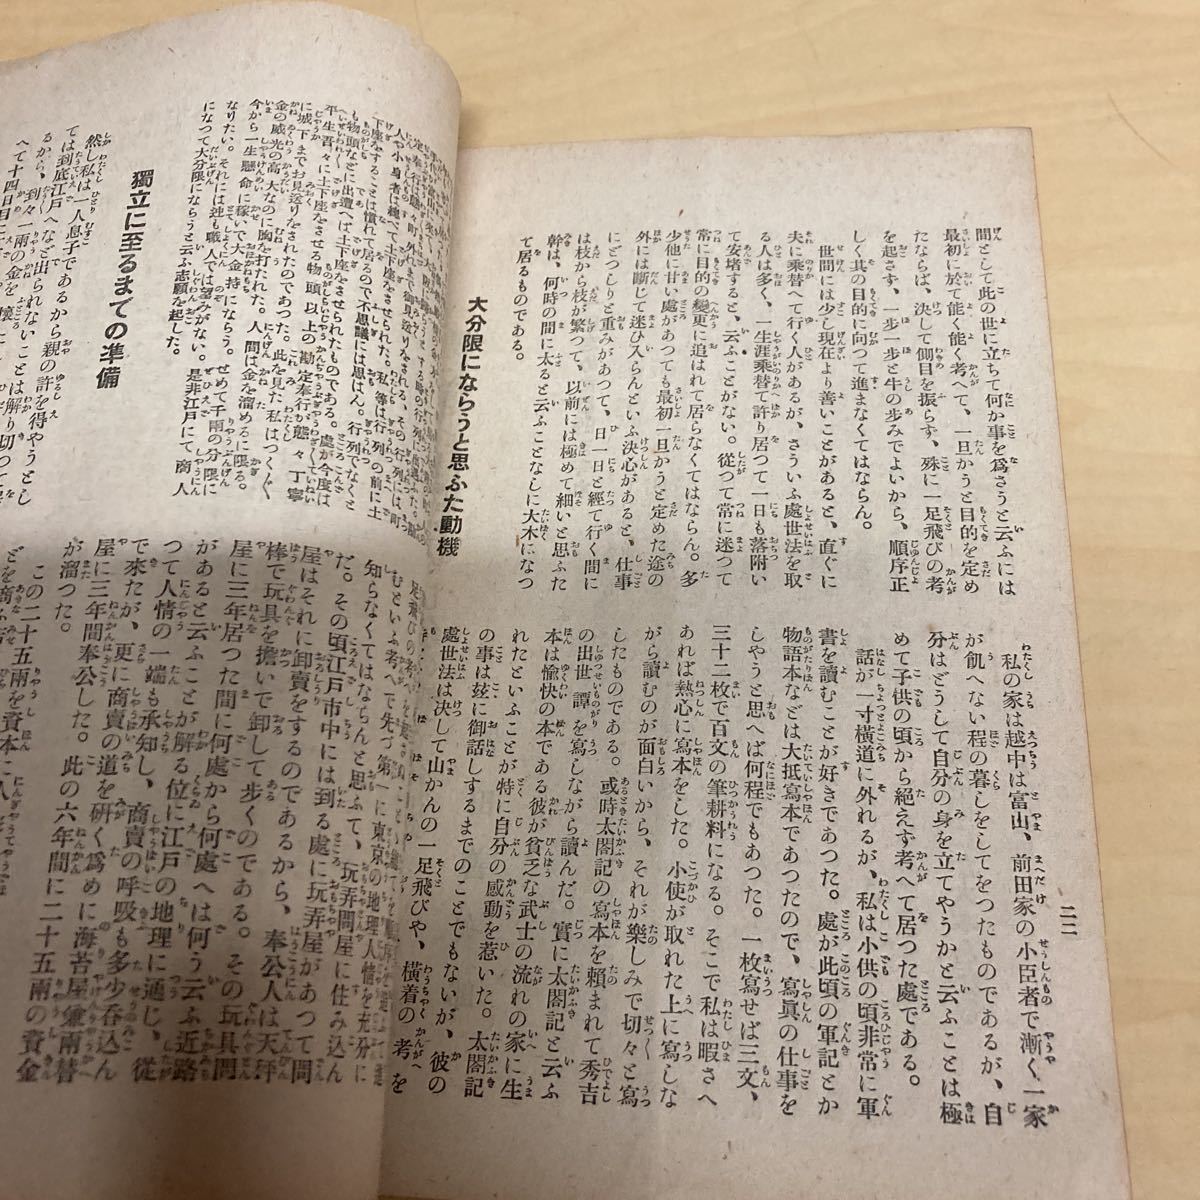 二二
間として此の世に立ちて何か事を爲さうと云ふには
最初に於て能く能く考へて、一旦かうと目的を定め
たならば、決して側目を振らず、殊に一足飛びの考
を起さず、一歩一歩と牛の歩みでよいから、順序正
しく其の目的に向つて進まなくてはならん。
世間には少し現在より善いことがあると、直ぐに
夫に乘替へて行く人があるが、さういふ處世法を取
る人は多く、一生涯乘替て許り居つて一日も落附い
て安堵すると、云ふことがない。從つて常に迷つて
常に目的の變更に追はれて居らなくてはならん。多
少他に甘い處があつても最初一旦かうと定めた途の
外には斷じて迷ひ入らんといふ決心があると、仕事
にどつしりと重みがあつて、日一日と經て行く間に
は枝から枝が繁つて、以前には極めて細いと思ふた
幹は、何時の間に太ると云ふことなしに大木になつ
て居るものである。
大分限にならうと思ふた動機
私の家は越中は富山、前田家の小臣者で漸く一家
が飢へない程の暮しをしてをつたものであるが、自
分はどうして自分の身を立てやうかと云ふことは極
めて子供の頃から絶えず考へて居つた處である。
話が一寸橫道に外れるが、私は小供の頃非常に軍
書を讀むことが好きであつた。處が此頃の軍記とか
物語本などは大抵寫本であつたので、寫眞の仕事を
しやうと思へば何程でもあつた。一枚寫せば三文、
三十二枚で百文の筆耕料になる。そこで私は暇さへ
あれば熱心に寫本をした。小使が取れた上に寫しな
がら讀むのが面白いから、それが樂しみで切々と寫
したものである。或時太閤記の寫本を賴まれて秀吉
の出世譚を寫しながら讀んだ。實に太閤記と云ふ
本は愉快の本である彼が貧乏な武士の流れの家に生
れたといふことが特に自分の感動を惹いた。太閤記
の事は玆に御話しするまでのことでもないが、彼の
處世法は決して山かんの一足飛びや、橫着の考を
下座をすることは慣れて居るので不思議には思はん。行列でなくと
も物頭などに出遭へば土下座をさせられた。私等は行列の前に土
平生吾々に土下座をさせる物頭以上の勘定奉行が態々丁寧
に城下までお見送りをされたのであつた。處が今度は
金の威光の高大なのに胸を打たれた。此を見た私はつくづく
今から一生懸命に稼いで大金持にならう。人間は金を溜めるに限る。
なりたい。それには迚も職人では望みがない。せめて千兩の分限に
になつて大分限にならうと云ふ志願を起した。是非江戸にて商人
獨立に至るまでの準備
然し私は一人息子であるから親の許を得やうとし
ては到底江戸へなど出られないことは解り切つて
るから、到々一兩の金を懷に
へて十四日目に
知らなくてはならんと思ふて、玩弄問屋に住み込ん
だ。その頃江戸市中には到る處に玩弄屋があつて問
屋はそれに卸賣をするのであるから、奉公人は天秤
棒で玩具を擔いで卸して歩くのである。その玩具問
屋に三年居つた間に何處から何處へは何う云ふ近路
があると云ふことが解る位に江戸の地理に通じ、從
つて人情の一端も承知し、商賣の呼吸も多少呑込ん
で來たが、更に商賣の道を研く爲めに海苔屋兼兩替
屋に三年間奉公した。此の六年間に二十五兩の資金
が溜つた。
この二十五兩を資本に